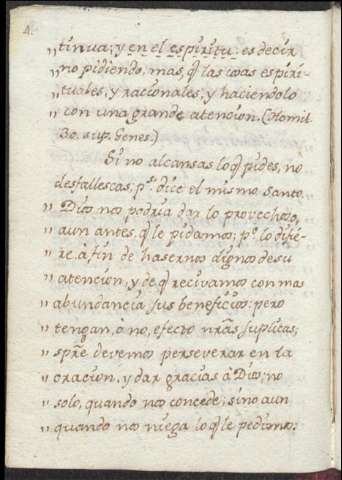 4.
„tinua; y en el espiritu: es decir
„no pidiendo, mas, q̃ las cosas espiri-
„tuales, y racionales; y haciendolo
„con una grande atencion. (Homil.
30. sup. Genes.)
Si no alcansas lo q̃ pides, no
desfallescas, p.ʳ dice el mismo Santo.
„Dios nos podria dar lo provechoso,
„aun antes, q̃ le pidamos; p.º lo difie-
„re, a fin de hasernos dignos de su
„atencion, y de q̃ recivamos con mas
„abundancia sus beneficios: pero
„tengan, ò no, efecto nr̃as suplicas;
„spr̃e devemos perseverar en la
„oracion, y dar gracias à Dios; no
„solo, quando nos concede; sino aun
„quando nos niega lo q̃ le pedimos: